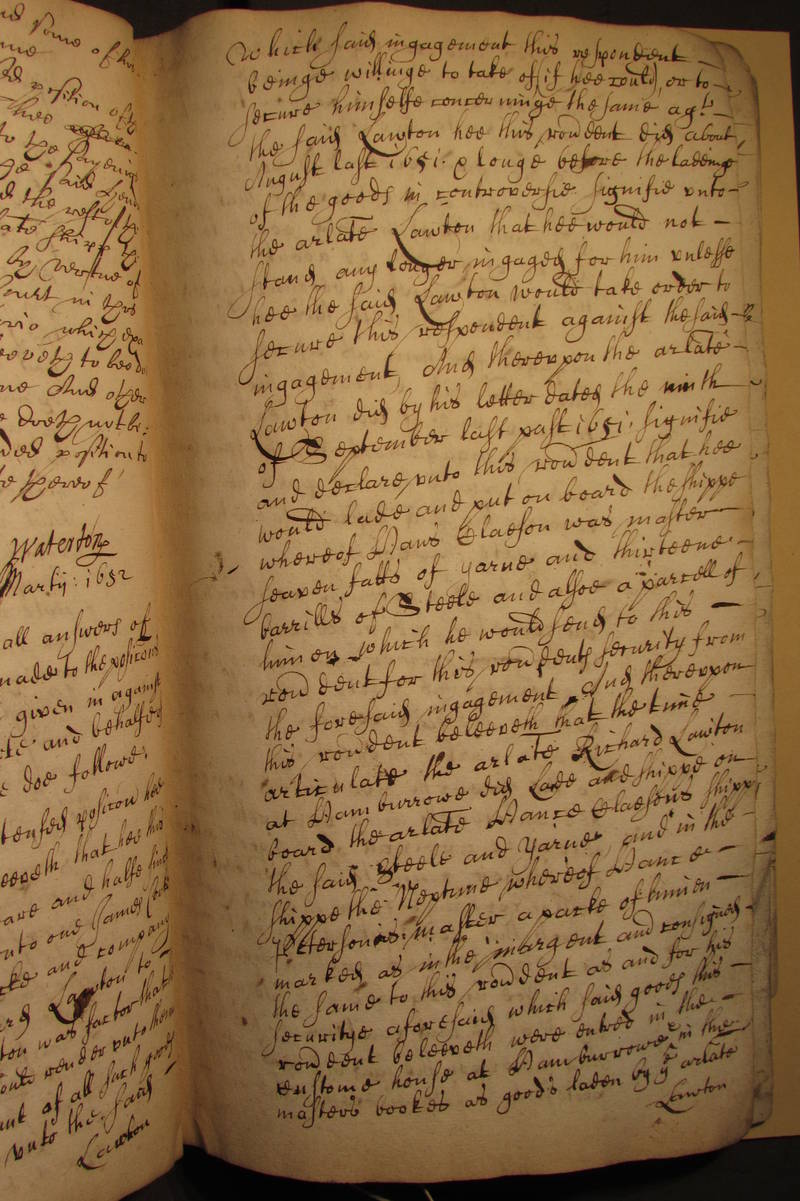 and some of his
me
position of
three
to the payeing
the said
d the rest of the
late shipp
by vertue of
Court in this
which
to bee
me And other
doeth not be:
ded position to
thereof
Waterton
Martij: 1652
all answers of
made to the positions
given in against
and behalfe of
doe followe.
tensed position hee
leeveth that hee this
are and halfe
unto one James
cke and company
Lawton to
ton was factor that
would render unto them
unt of all such goods
unto the said
Lawton
Which said ingagement this respondent
beinge willinge to take off (if hee could) or to
secure himselfe concerninge the same agt
the said Lawton hee this rondent did about
August last 1651. & longe before the ladeing
of the goods in controversie signifie unto
the arlate Lawton that hee would not
stand any longer ingaged for him unlesse
hee the said Lawton would take order to
secure this respondent against the said
ingagement, And thereupon the arlate
Lawton did by his letter dated the ninth
of September last past 1651. signifie
and declare unto this rondent that hee
would lade and put on board the shippe
whereof Hans Claeson was master
seaven fatts of yarne and thirteene
barrills of Steele and alsoe a parcell of
linnen which he would send to this
rondent for this rondents security from
the foresaid ingagement, And thereupon
this rondent beleeveth that the time
articulate the arlate Richard Lawton
at Hamburrowe did Lade and shippe on
board the arlate Hance Claesons shipp
the said Steele and yarne, and in the
shippe the Neptune whereof Hance
Petersen is master a packe of linnen
marked as in the margent and consigned
the same to this rondent as and for his
securitye aforesaid which said goods this
rondent beleeveth were entred in the
custome house at Hamburrowe & in the
masters bookes as goods laden by ye arlate
Lawton